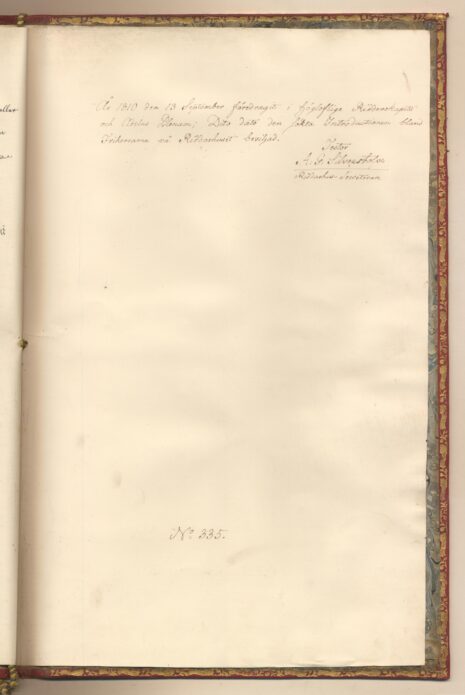 År 1810 den 13 September föredragit i höglofliga Ridderskapets
och Adelns Plenum; Dito dato den sökta Introductionen bland
Friherrarna på Riddarhuset beviljad.
Testor
A. G. Silverstolpe
Riddarhus-Secreterare
N° 335.